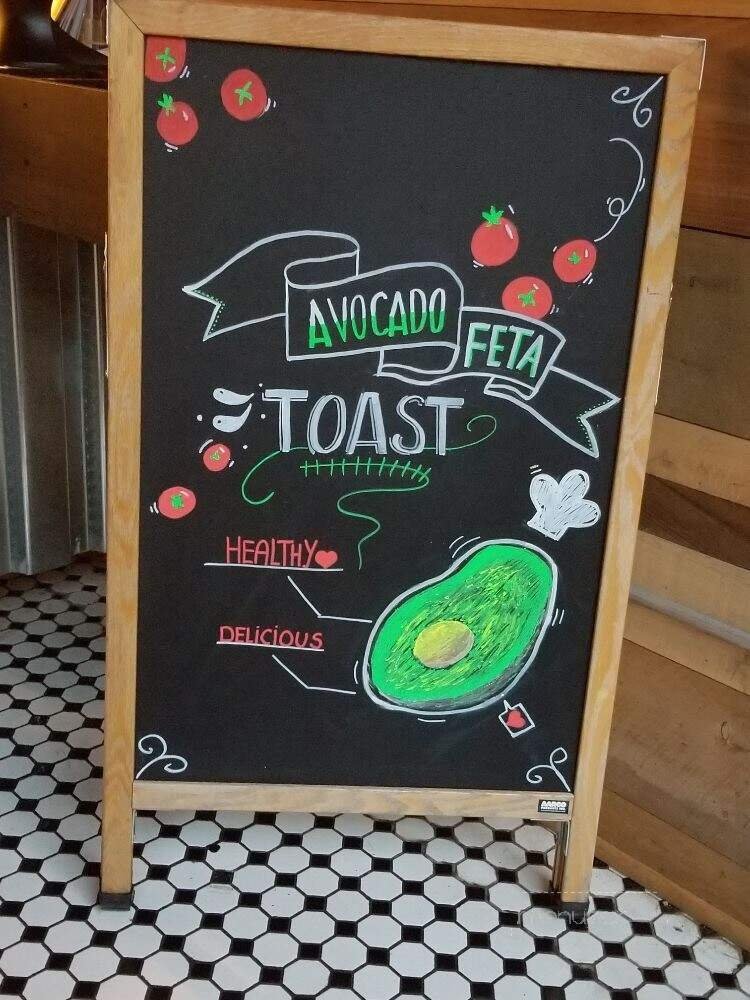 AVOCADO
FETA
TOAST
HEALTHY
DELICIOUS
AARCO